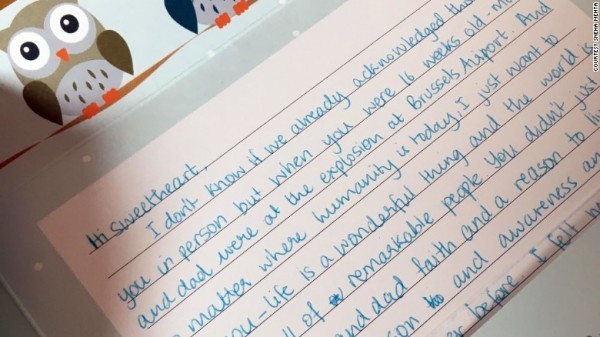 Hi Sweetheart,
I don't know if we already acknowledged this
you in person but when you were 16 weeks old. mo
and dad were at the explosion at Brussels Airport. And
matter where humanity is today, I just want to
you - life is a wonderful thing and the world is
ll of remarkable people. You didn't just
and dad faith and a reason to li
son and awareness an
before I fell
COURTESY SNEHA MEHTA